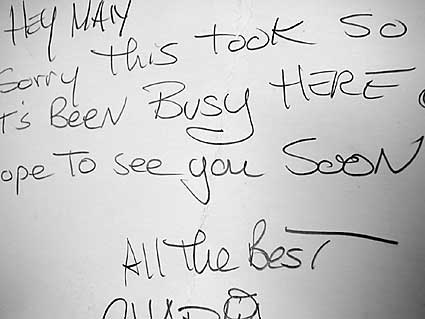 HEY MAN
Sorry this took so
t's BEEN BUSY HERE
ope to see you SOON
All the BEST